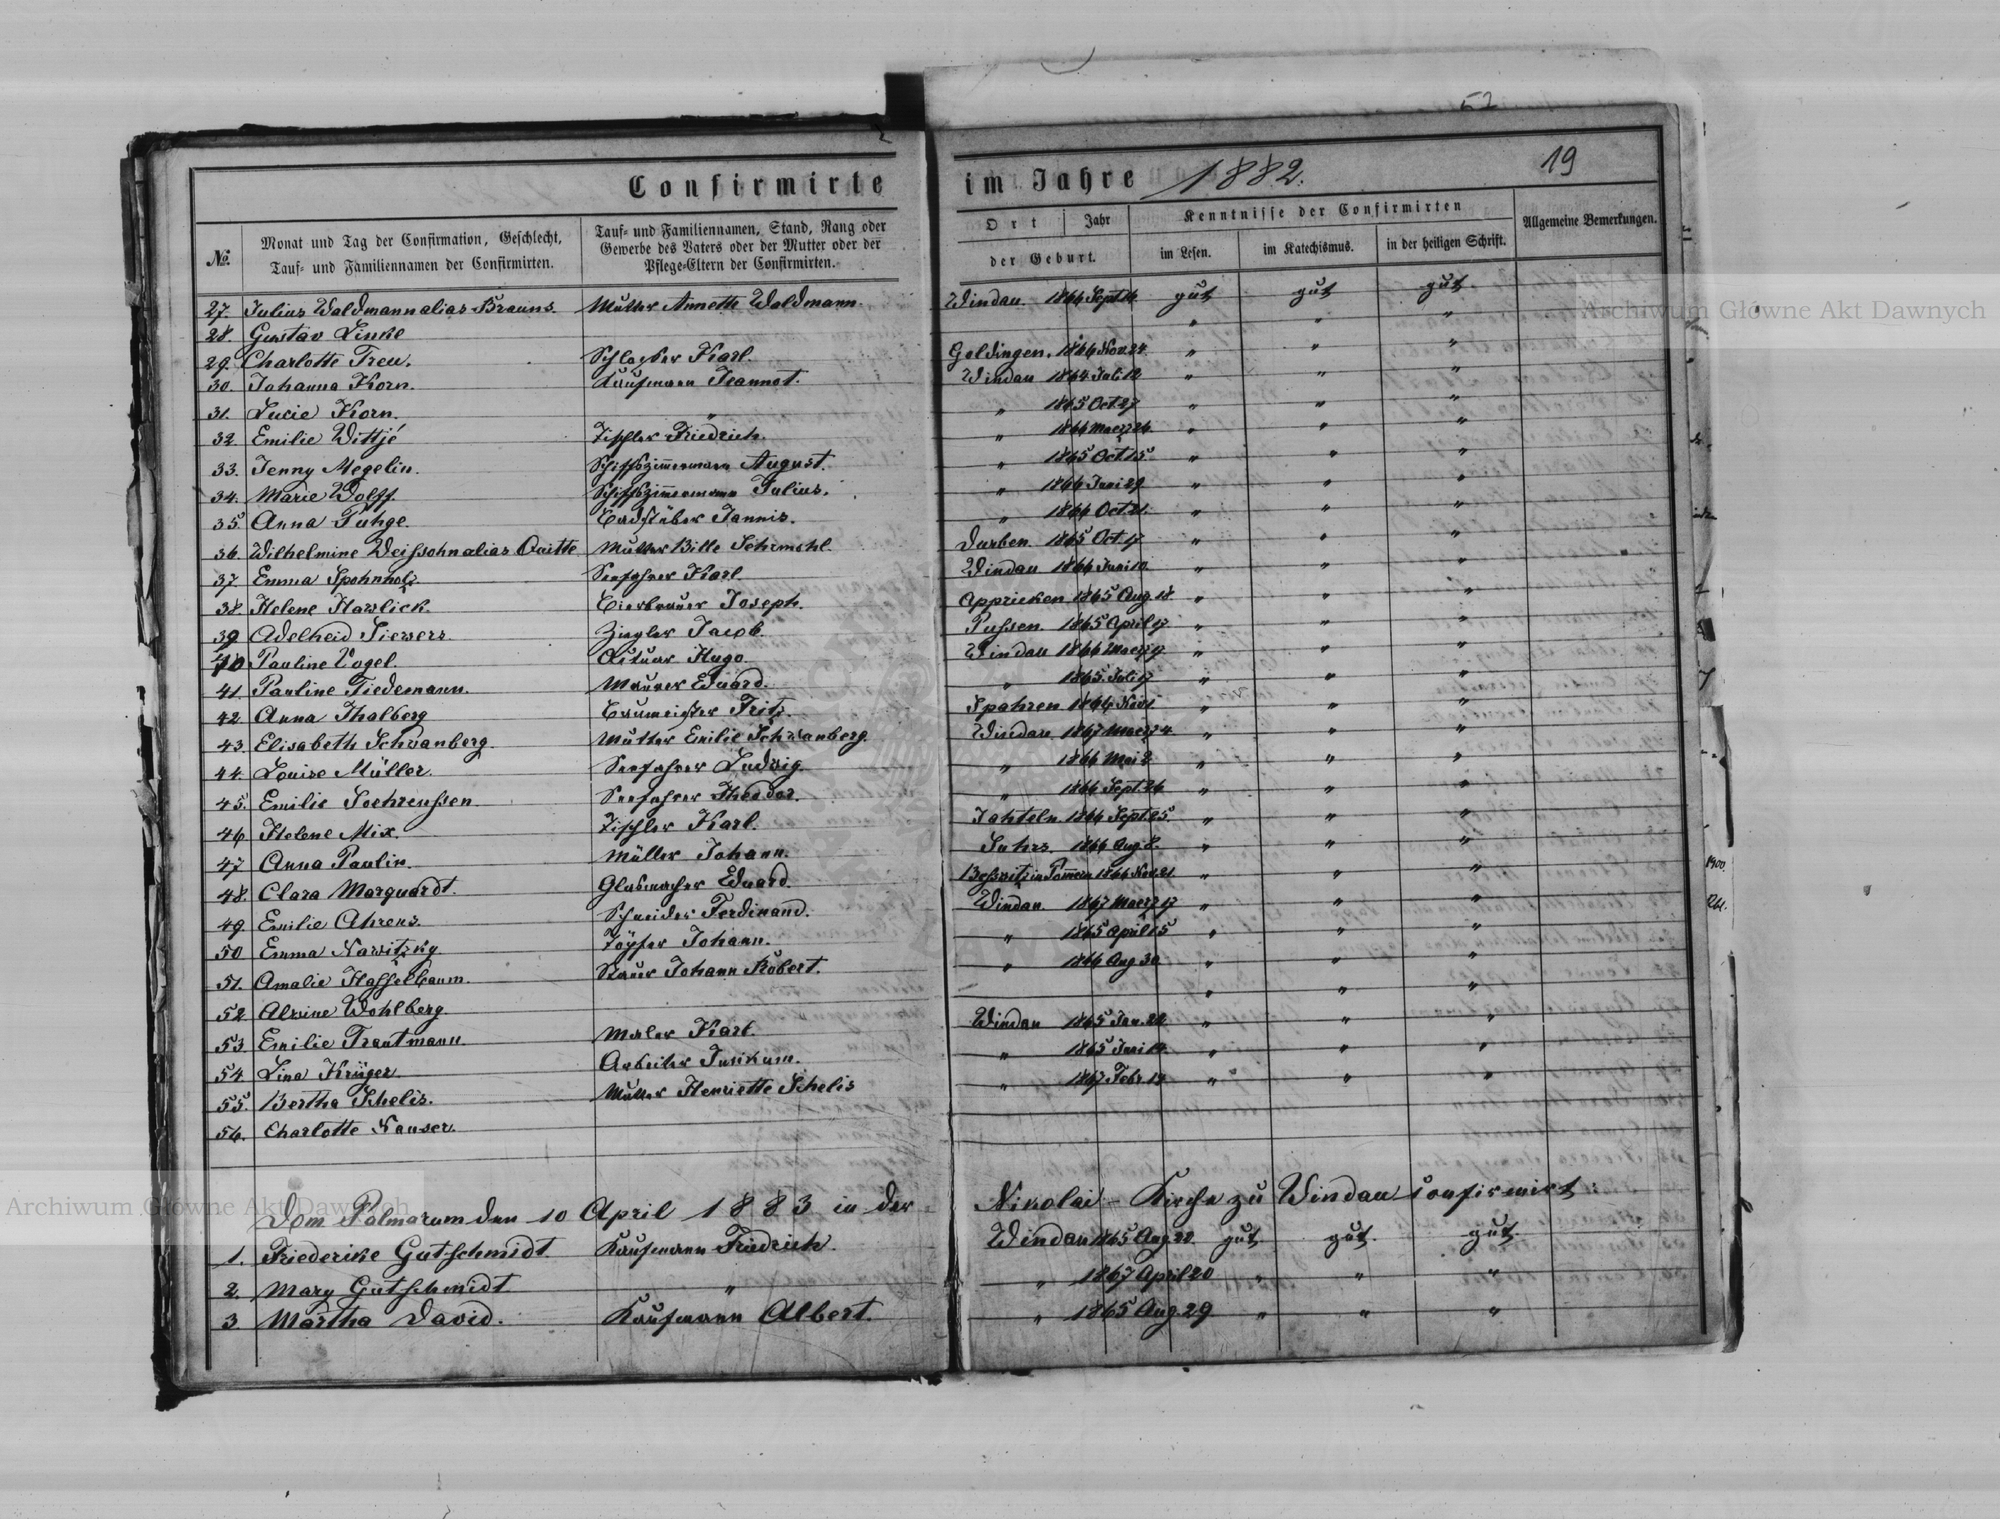 52
19
Confirmirte im Jahre 1882.
No. Monat und Tag der Confirmation, Geschlecht, Tauf- und Familiennamen der Confirmirten. Tauf- und Familiennamen, Stand, Rang oder Gewerbe des Vaters oder der Mutter oder der Pflege-Eltern der Confirmirten. Ort Jahr der Geburt. Kenntnisse der Confirmirten im Lesen. im Katechismus. in der heiligen Schrift. Allgemeine Bemerkungen.
27. Julius Waldmann alias Brauns. Mutter Annette Waldmann. Windau. 1864 Sept 14 gut gut gut.
28. Gustav Linke " " "
29. Charlotte Treu. Karl. Goldingen. 1866 Nov. 24. " " "
30. Johanna Korn. Kaufmann Jeannot. Windau 1864 Juli 12 " " "
31. Lucie Korn. " " 1865 Oct. 27 " " "
32. Emilie Wittjé Tischler Friedrich. " 1866 Maerz 26. " " "
33. Jenny Megelin. Schiffszimmermann August. " 1865 Oct. 15. " " "
34. Marie Wolff. Schiffszimmermann Julius. " 1866 Juni 29 " " "
35. Anna Puhge. Badstüber Jannis. " 1866 Oct. 21. " " "
36. Wilhelmine Weissohn alias Mutter Bille Durben. 1865 Oct. 17 " " "
37 Emma Spohnholz Seefahrer Karl. Windau 1866 Juni 10. " " "
38. Helene Harslick. Bierbrauer Joseph. Appricken 1865 Aug. 18. " " "
39 Adelheid Siewers. Ziegler Jacob. Pussen. 1865 April 17 " " "
40 Pauline Vogel. Actuar Hugo. Windau 1866 Maerz 17 " " "
41 Pauline Tiedemann. Maurer Eduard. " 1865. Juli 17 " " "
42. Anna Thalberg Baumeister Fritz. Spahren 1864 Nov 1 " " "
43. Elisabeth Schwanberg. Mutter Emilie Schwanberg. Windau 1867 Maerz 4 " " "
44 Louise Müller. Seefahrer Ludwig. " 1866 Mai 2 " " "
45. Emilie Soehrenssen. Seefahrer Theodor. " 1866 Sept. 26 " " "
46 Helene Mix. Tischler Karl. Jahteln. 1864 Sept. 25. " " "
47 Anna Paulin. Müller Johann. Suhrs. 1866 Aug. 8. " " "
48. Clara Marquardt. Glasmacher Eduard. in Pommern 1864 Nov. 21 " " "
49. Emilie Ahrens. Schneider Ferdinand. Windau. 1867 Maerz 17 " " "
50 Emma Nawitzky. Töpfer Johann. " 1865 April 15 " " "
51. Amalie Hasselbaum. Johann Robert. " 1866 Aug 30 " " "
52 Alwine Wohlberg. " " "
53. Emilie Trautmann. Maler Karl. Windau 1865 Jan. 22 " " "
54. Lina Krüger. Arbeiter " 1865 Juni 14. " " "
55. Bertha Schelis. Mutter Henriette Schelis " 1867 Febr. 14 " " "
56. Charlotte Nauser.
Dom. Palmarum den 10 April 1883 in der Nikolai-Kirche zu Windau confirmirt:
1. Friederike Gutschmidt Kaufmann Friedrich. Windau 1865 Aug. 22. gut. gut. gut.
2. Mary Gutschmidt " " 1867 April 20 " " "
3. Martha David. Kaufmann Albert. " 1865 Aug. 29 " " "
Archiwum Główne Akt Dawnych
Archiwum Główne Akt Dawnych